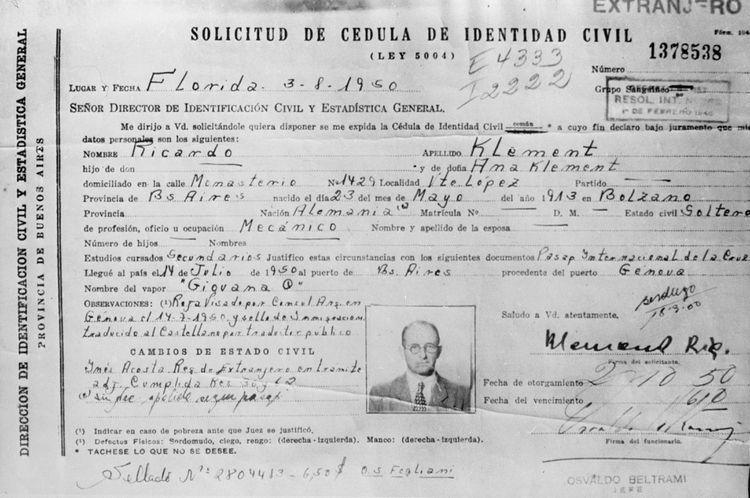 EXTRANJERO
SOLICITUD DE CEDULA DE IDENTIDAD CIVIL
(LEY 5004)
E4333
I2222
Número 1378538
LUGAR Y FECHA Florida 3-8-1950
Grupo Sanguíneo
RESOL. INT.
1º DE FEBRERO 1946
SEÑOR DIRECTOR DE IDENTIFICACIÓN CIVIL Y ESTADÍSTICA GENERAL.
Me dirijo a Vd. solicitándole quiera disponer se me expida la Cédula de Identidad Civil común * a cuyo fin declaro bajo juramento que mis
datos personales son los siguientes:
NOMBRE Ricardo APELLIDO Klement
hijo de don y de doña Ana Klement
domiciliado en la calle Monasterio Nº 1429 Localidad Vte López Partido
Provincia de Bs Aires nacido el día 23 del mes de Mayo del año 1913 en Bolzano
Provincia Nación Alemania Matrícula Nº D. M. Estado civil Soltero
de profesión, oficio u ocupación Mecánico Nombre y apellido de la esposa
Número de hijos Nombres
Estudios cursados Secundarios Justifico estas circunstancias con los siguientes documentos Pasap Internacional de la Cruz
Llegué al país el 14 de Julio de 1950 al puerto de Bs. Aires procedente del puerto Genova
Nombre del vapor "Giovana C"
OBSERVACIONES: (1) Roja Visado por Consul Arg. en
Genova el 14-7-1950, y sello de Inmigracion
traducido al Castellano por traductor publico
Saludo a Vd. atentamente.
CAMBIOS DE ESTADO CIVIL
Inés Acosta Reg. de Extranjero en tramite
Firma del solicitante.
Fecha de otorgamiento 2 10 50
Fecha de vencimiento
Firma del funcionario.
(1) Indicar en caso de pobreza ante que Juez se justificó,
(2) Defectos Físicos: Sordomudo, ciego, rengo: (derecha-izquierda). Manco: (derecha-izquierda).
* TACHESE LO QUE NO SE DESEE.
Sellado Nº 2804413 - 6,50$ O.S. Fogliani
OSVALDO BELTRAMI
JEFE
DIRECCION DE IDENTIFICACION CIVIL Y ESTADISTICA GENERAL
PROVINCIA DE BUENOS AIRES